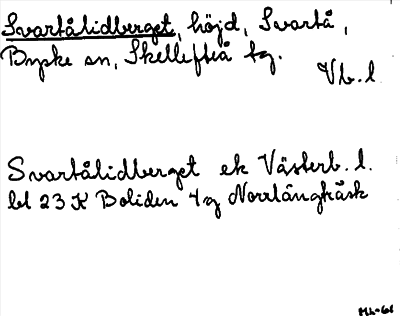 Svartålidberget, höjd, Svartå,
Byske sn, Skellefteå tg.
Vb. l.
Svartålidberget ek Västerb. l.
bl 23 K Boliden 4 g Norrlångträsk
ML-61